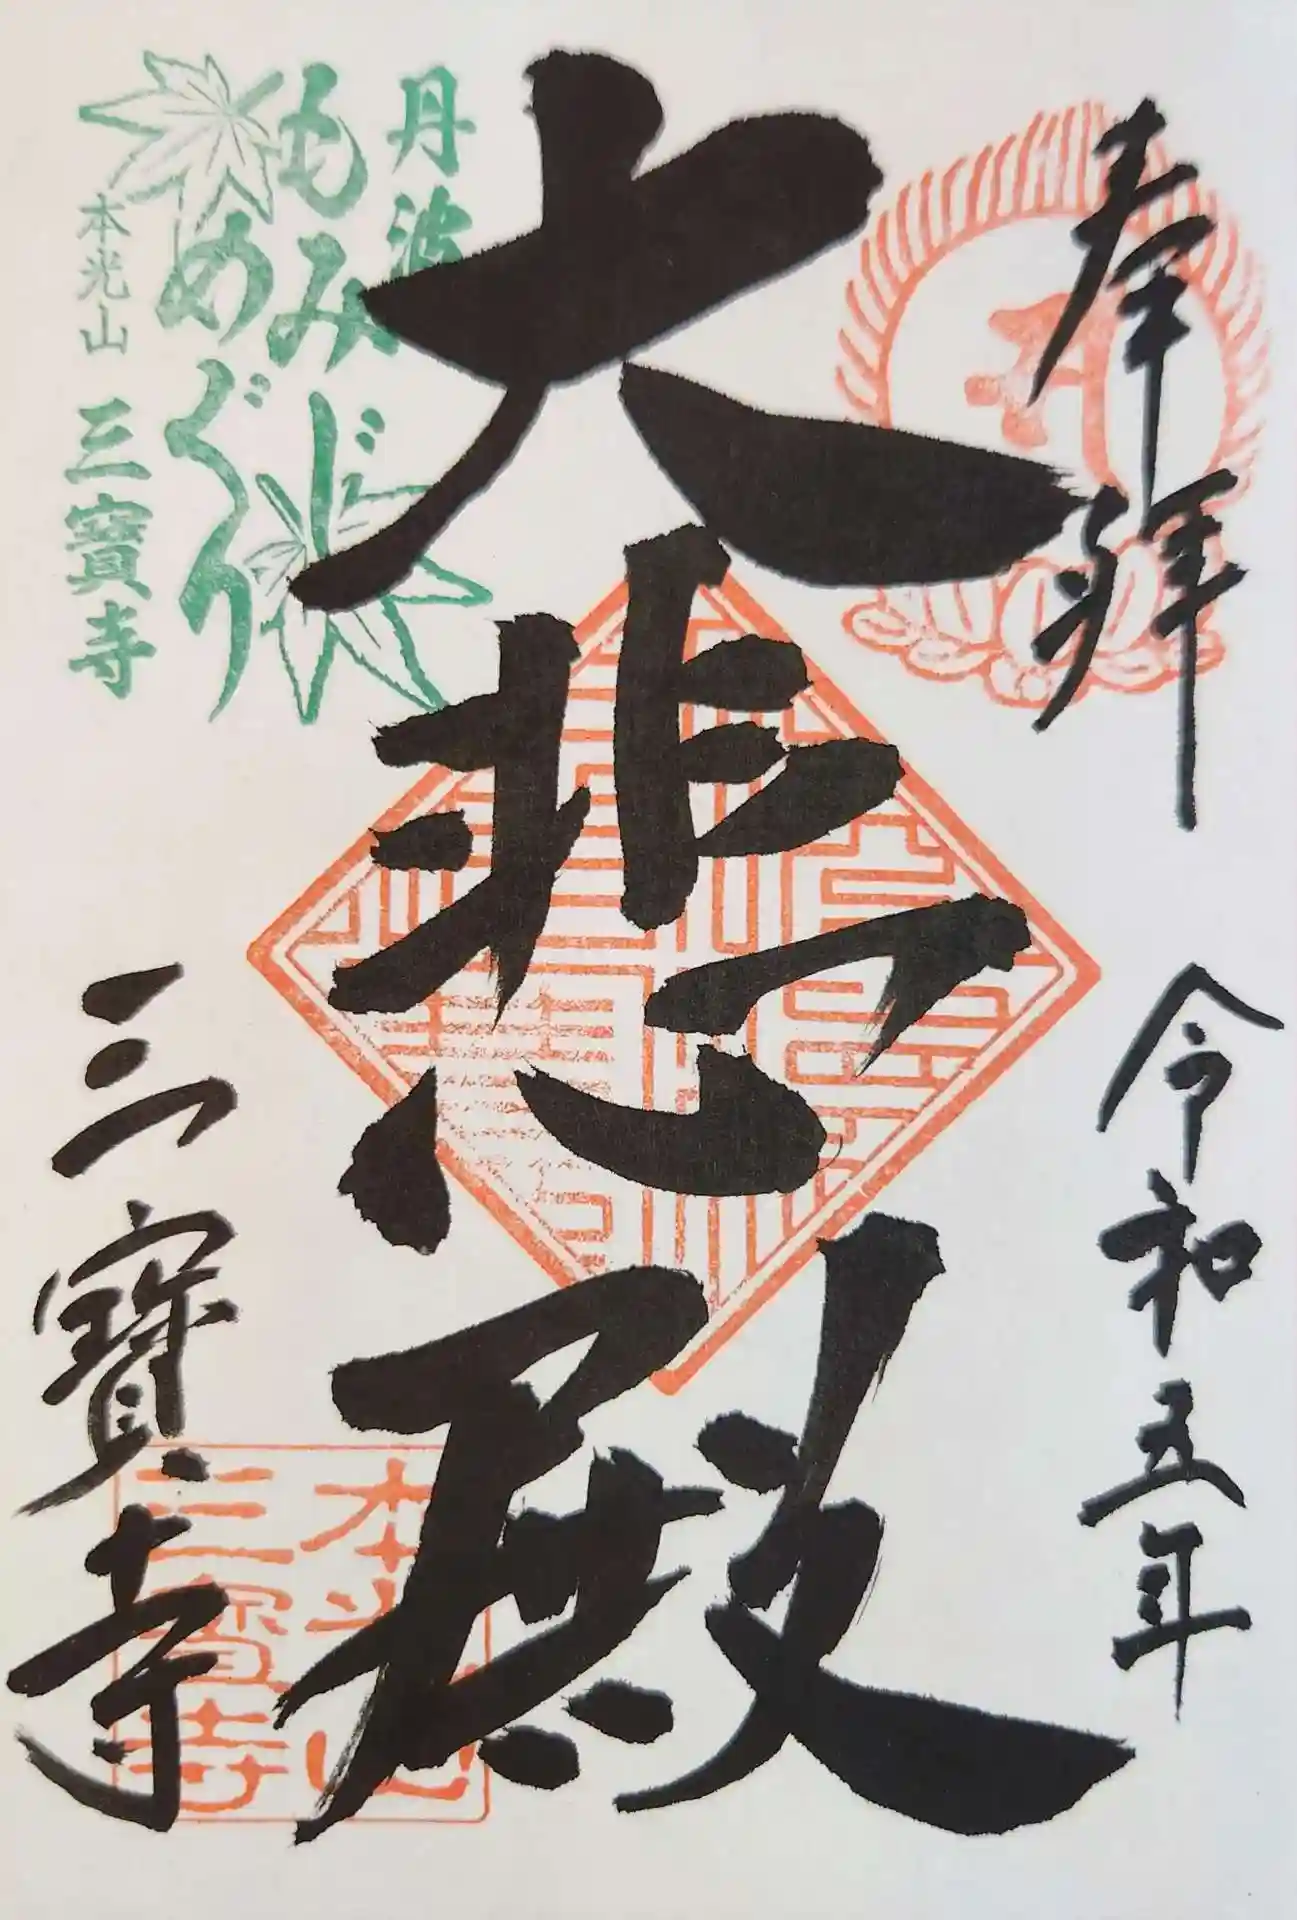 奉拝
令和五年
大悲殿
丹波
もみじ
めぐり
本光山 三寶寺
三寶寺
本光山
三寶寺